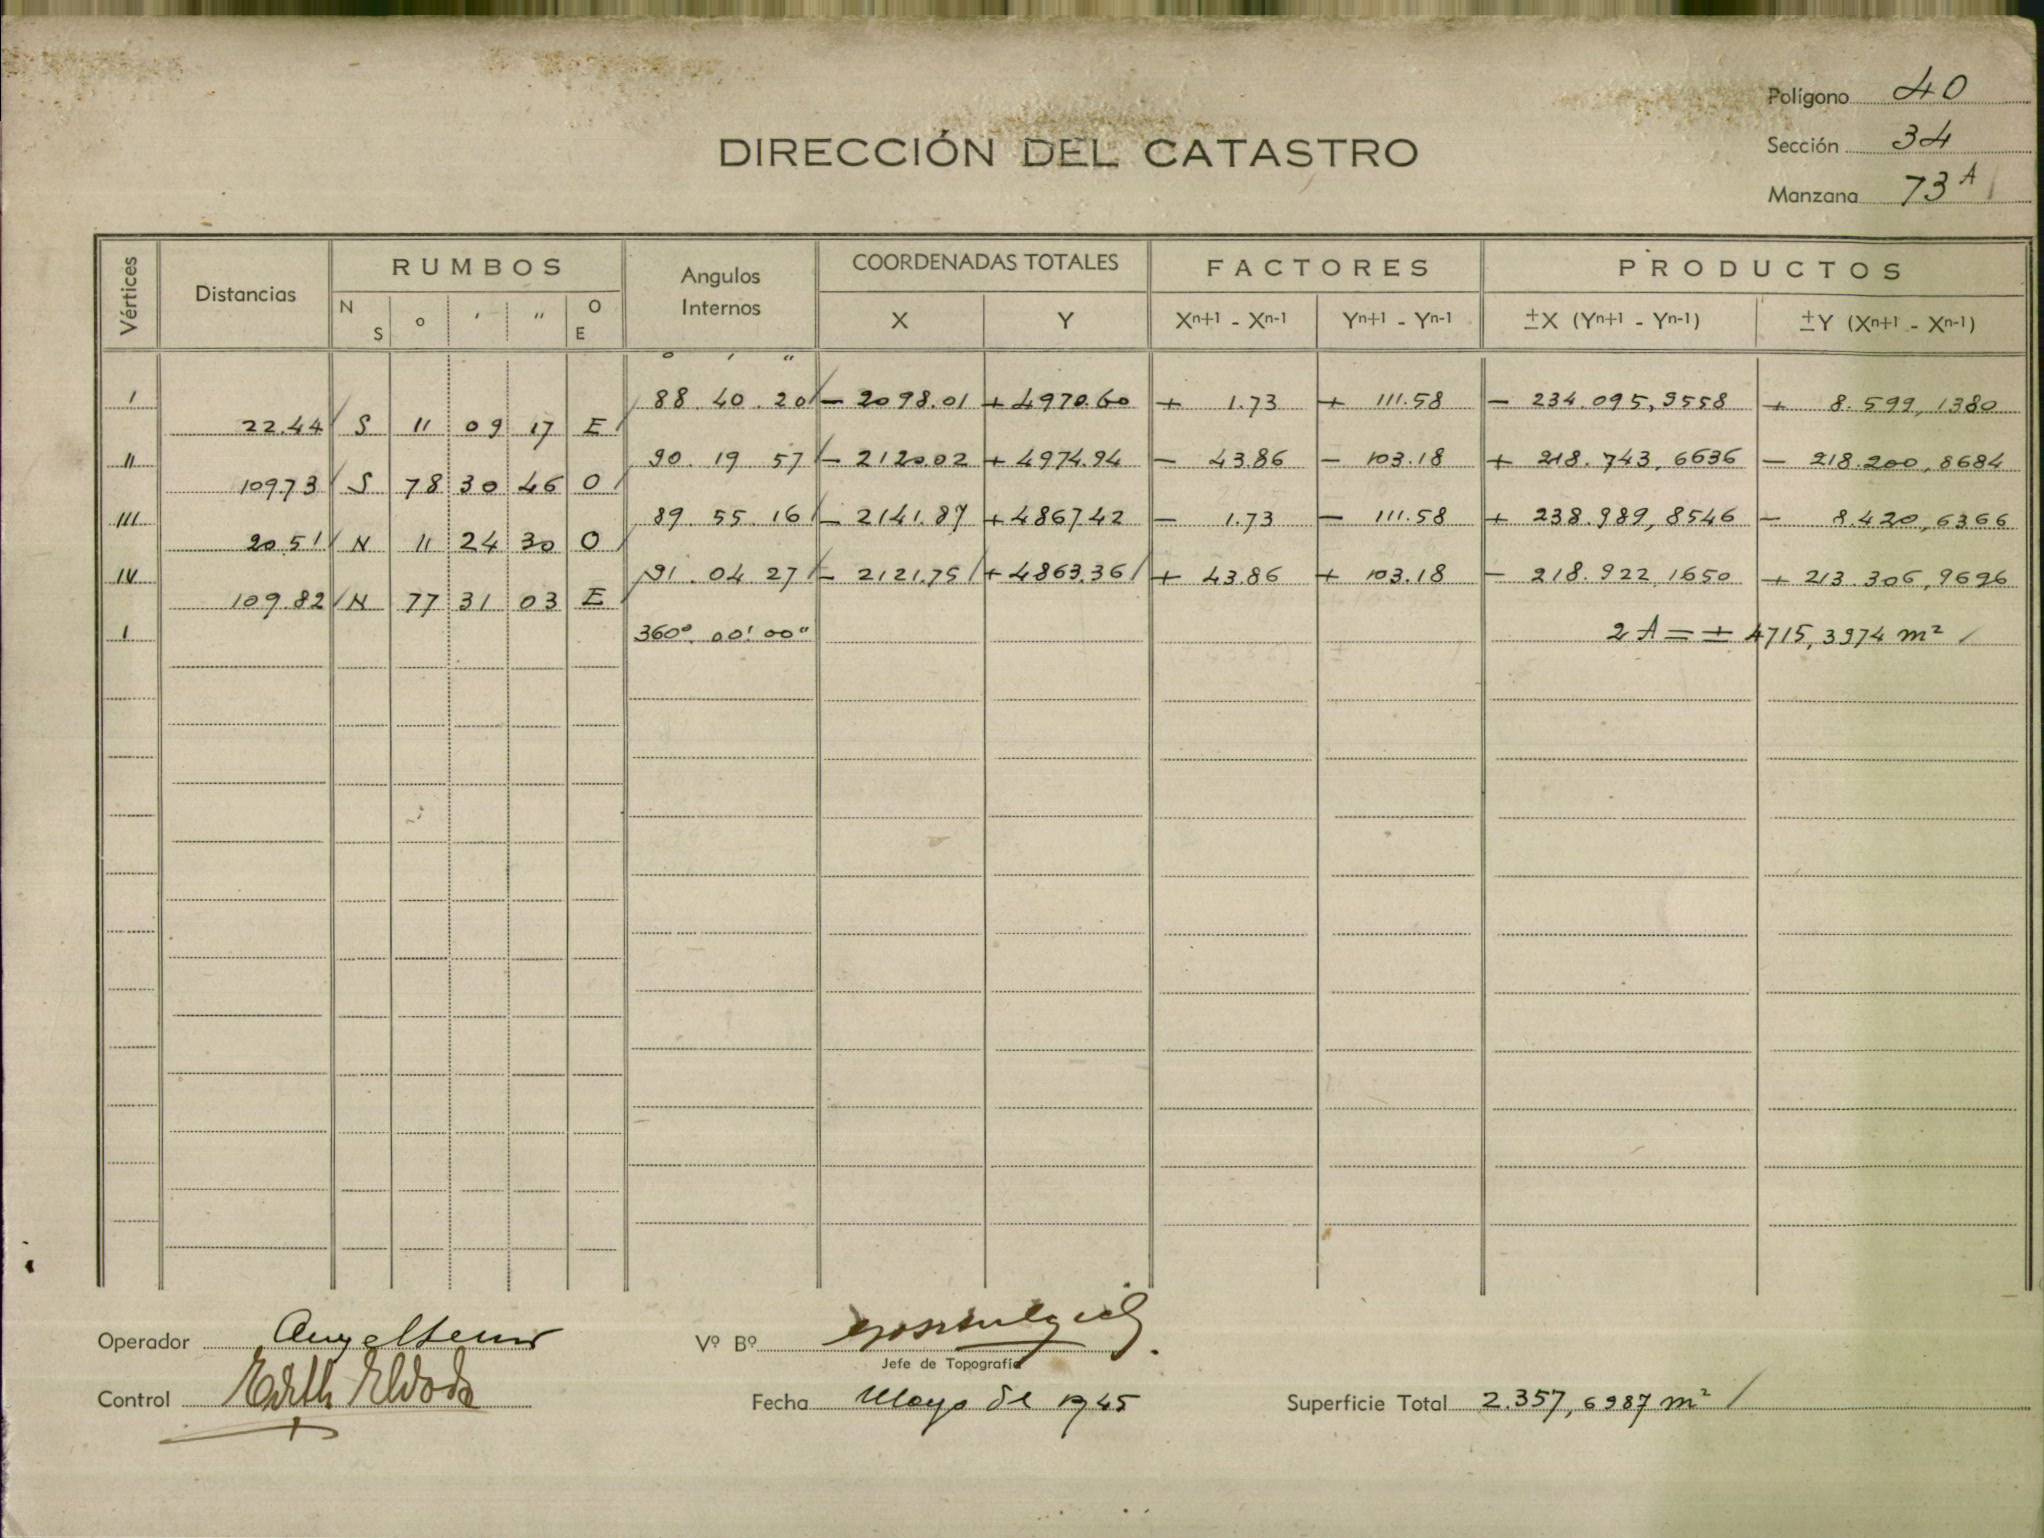 Polígono 40
DIRECCIÓN DEL CATASTRO
Sección 34
Manzana 73 A
Vértices Distancias RUMBOS Angulos Internos COORDENADAS TOTALES FACTORES PRODUCTOS
N S ° ' " O E X Y Xn+1 - Xn-1 Yn+1 - Yn-1 ±X (Yn+1 - Yn-1) ±Y (Xn+1 - Xn-1)
° ' "
I 88 40 20 - 2098.01 + 4970.60 + 1.73 + 111.58 - 234.095,9558 + 8.599,1380
22.44 S 11 09 17 E
II 90 19 57 - 2120.02 + 4974.94 - 43.86 - 103.18 + 218.743,6636 - 218.200,8684
109.73 S 78 30 46 O
III 89 55 16 - 2141.87 + 4867.42 - 1.73 - 111.58 + 238.989,8546 - 8.420,6366
20.51 N 11 24 30 O
IV 91 04 27 - 2121.75 + 4863.36 + 43.86 + 103.18 - 218.922,1650 + 213.306,9696
109.82 N 77 31 03 E
I 360° 00' 00" 2 A = ± 4715,3974 m²
Operador
Vº Bº
Jefe de Topografía
Control
Fecha Mayo de 1945
Superficie Total 2.357,6987 m²